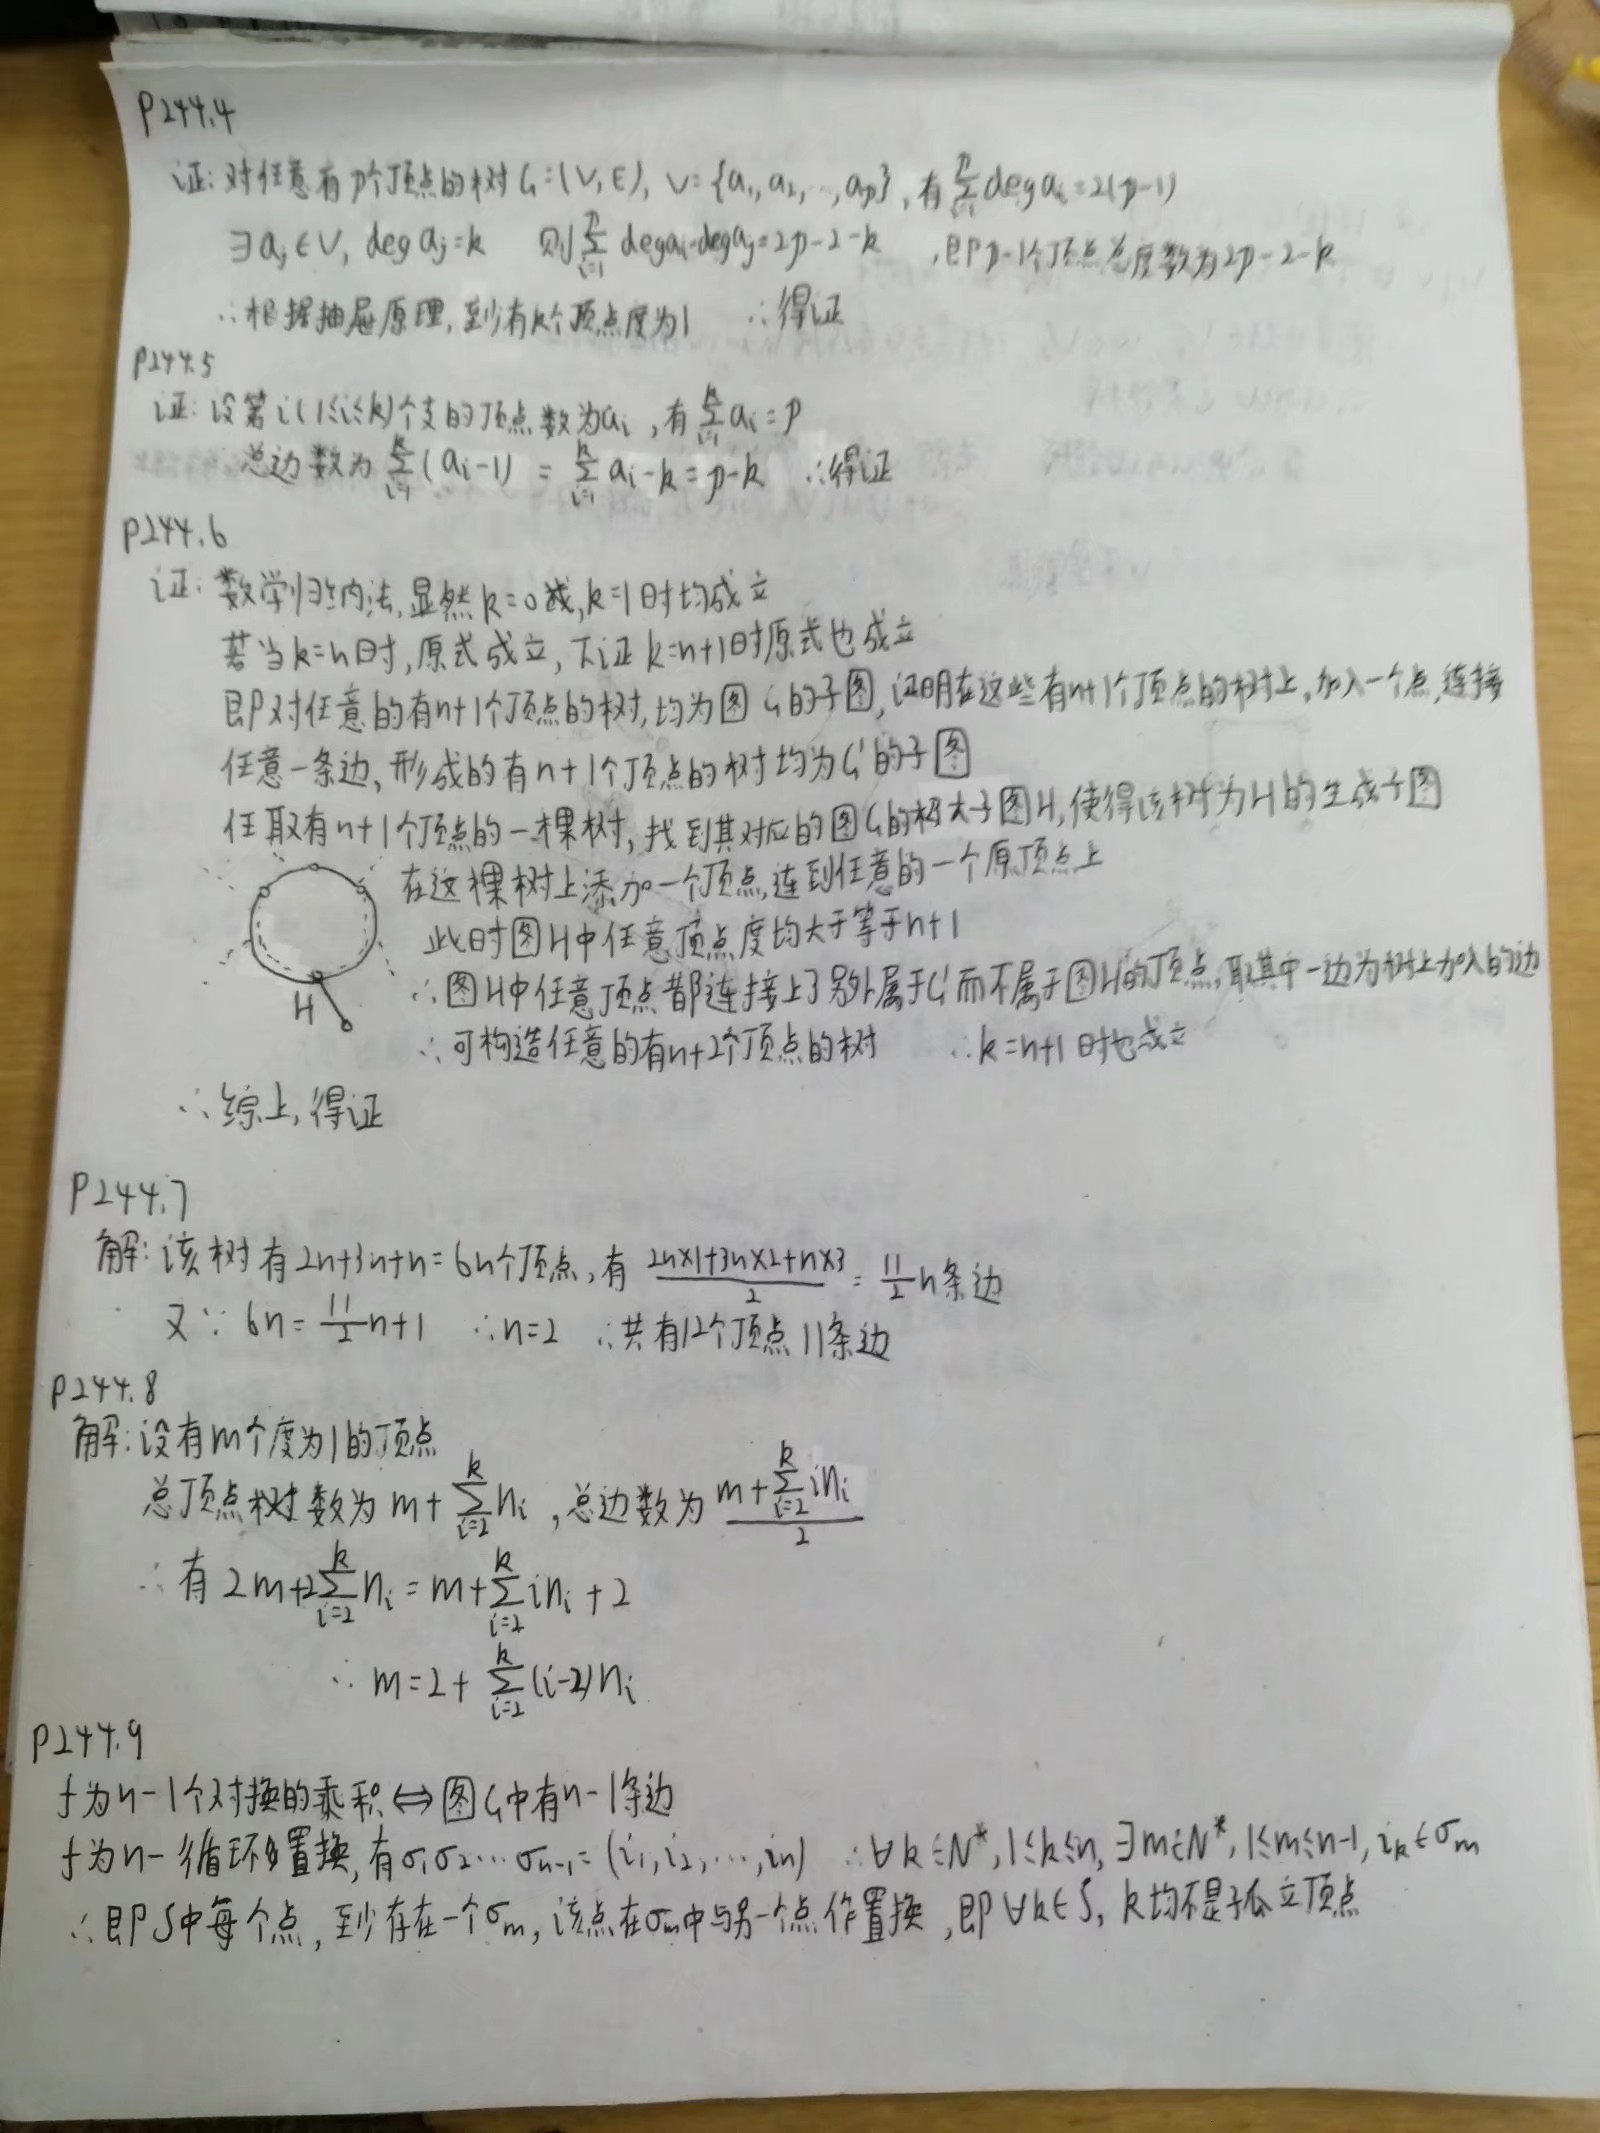 P244.4
证:对任意有p个顶点的树G=(V,E), V={a₁,a₂,…,aₚ}, 有∑_{i=1}^{p} deg aᵢ=2(p-1)
∃aⱼ∈V, deg aⱼ=k 则∑_{i=1}^{p} deg aᵢ-deg aⱼ=2p-2-k ,即p-1个顶点总度数为2p-2-k
∴根据抽屉原理,至少有k个顶点度为1 ∴得证
P244.5
证:设第i(1≤i≤k)个支的顶点数为aᵢ,有∑_{i=1}^{k} aᵢ=p
总边数为∑_{i=1}^{k}(aᵢ-1)=∑_{i=1}^{k} aᵢ-k=p-k ∴得证
P244.6
证:数学归纳法,显然k=0或,k=1时均成立
若当k=n时,原式成立,下证k=n+1时原式也成立
即对任意的有n+1个顶点的树,均为图G的子图,证明在这些有n+1个顶点的树上,加入一个点,连接
任意一条边,形成的有n+1个顶点的树均为G'的子图
任取有n+1个顶点的一棵树,找到其对应的图G的极大子图H,使得该树为H的生成子图
在这棵树上添加一个顶点,连到任意的一个原顶点上
此时图H中任意顶点度均大于等于n+1
∴图H中任意顶点都连接上了另外属于G'而不属于图H的顶点,取其中一边为树上加入的边
H
∴可构造任意的有n+2个顶点的树 ∴k=n+1时也成立
∴综上,得证
P244.7
解:该树有2n+3n+n=6n个顶点,有(2n×1+3n×2+n×3)/2=11/2 n条边
又∵6n=11/2 n+1 ∴n=2 ∴共有12个顶点11条边
P244.8
解:设有m个度为1的顶点
总顶点树数为m+∑_{i=2}^{k} nᵢ,总边数为(m+∑_{i=2}^{k} inᵢ)/2
∴有2m+2∑_{i=2}^{k} nᵢ=m+∑_{i=2}^{k} inᵢ+2
∴m=2+∑_{i=2}^{k}(i-2)nᵢ
P244.9
f为n-1个对换的乘积⇔图G中有n-1条边
f为n-循环置换,有σ₁σ₂…σₙ₋₁=(i₁,i₂,…,iₙ) ∴∀k∈N*,1≤k≤n,∃m∈N*,1≤m≤n-1,iₖ∈σₘ
∴即S中每个点,至少存在一个σₘ,该点在σₘ中与另一个点作置换,即∀k∈S,k均不是孤立顶点